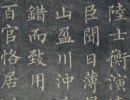 陸士衡演
臣聞日薄
山盈川沖
錯而致用
百官恪居